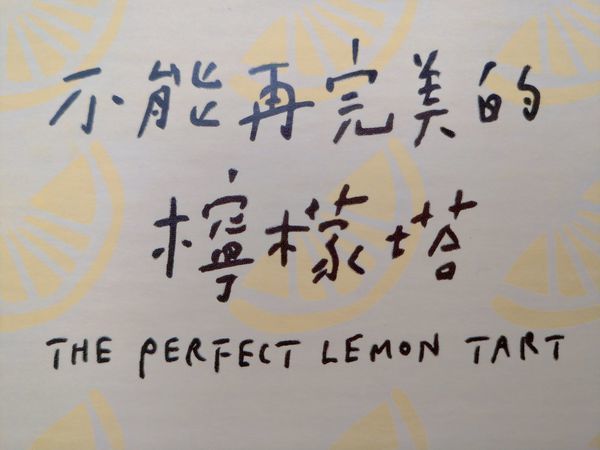 不能再完美的
檸檬塔
THE PERFECT LEMON TART